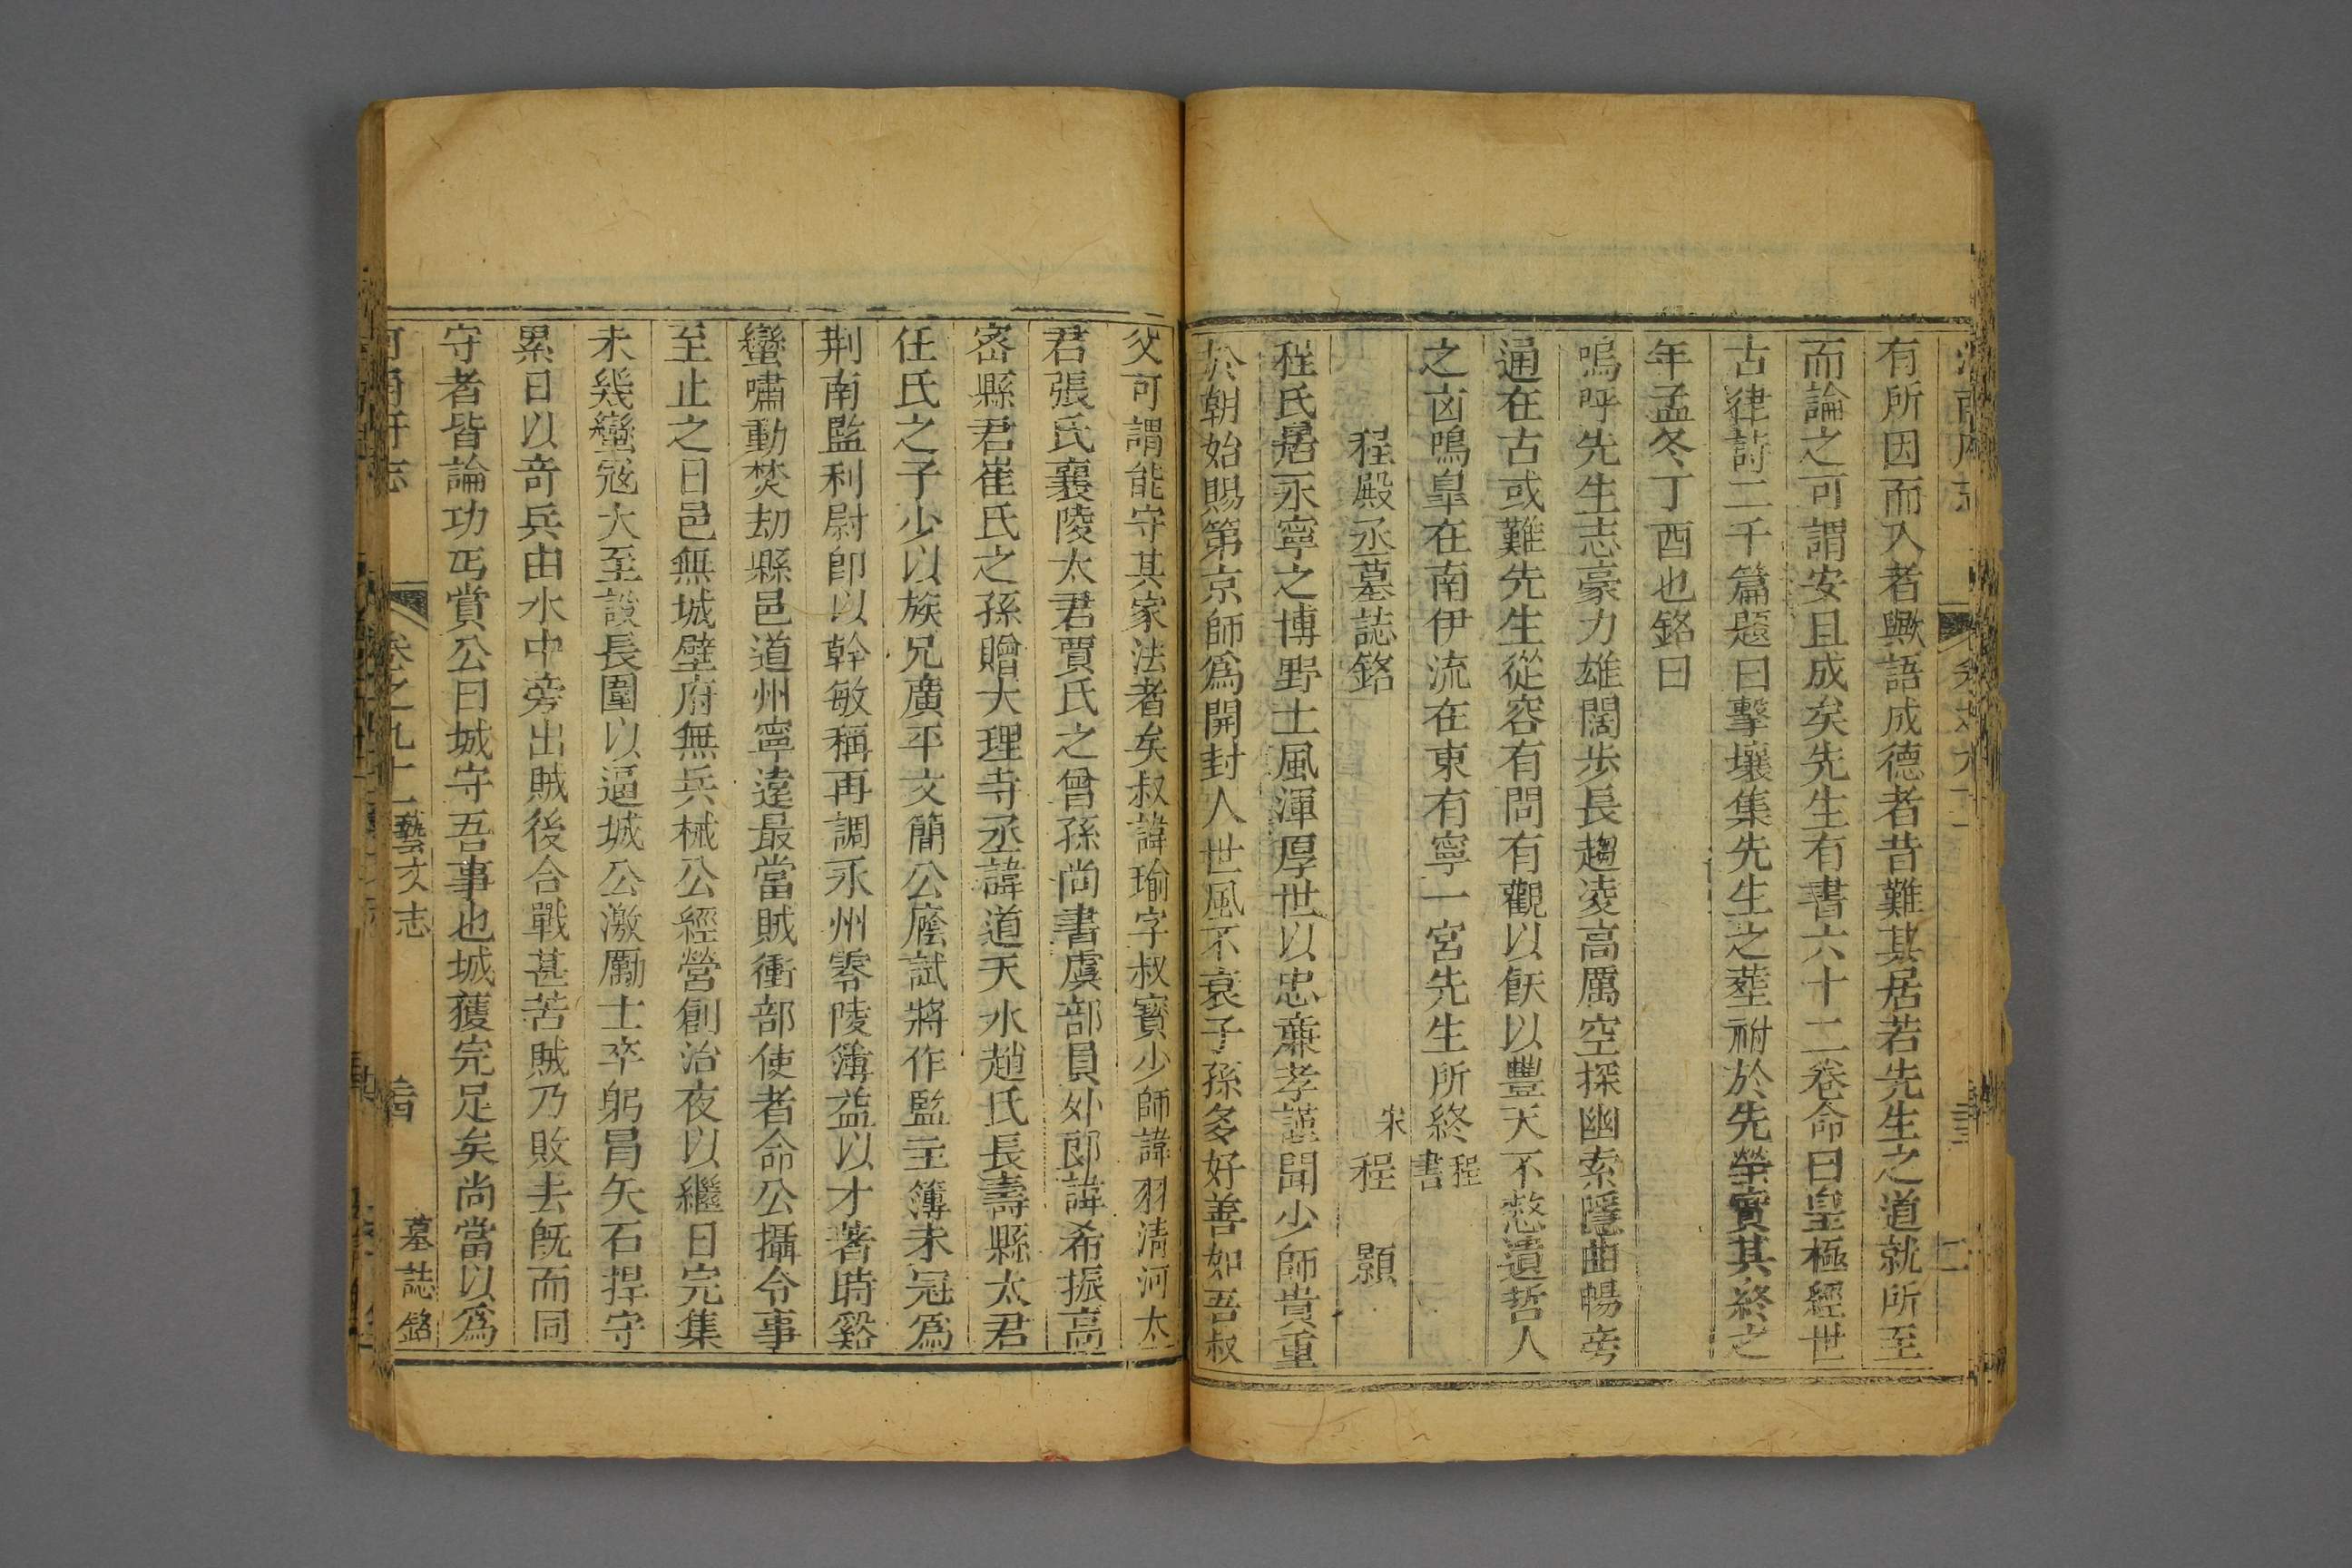 有所因而入者歟語成德者昔難其居若先生之道就所至
而論之可謂安且成矣先生有書六十二卷命曰皇極經世
古律詩二千篇題曰擊壤集先生之塟祔於先塋實其終之
年孟冬丁酉也銘曰
嗚呼先生志豪力雄闊步長趨凌高厲空探幽索隱曲暢旁
通在古或難先生從容有問有觀以飫以豐天不憗遺哲人
之凶鳴臯在南伊流在東有寧一宮先生所終程書
程殿丞墓誌銘 宋 程 顥
程氏居永寧之博野土風渾厚世以忠亷孝謹聞少師貴重
於朝始賜第京師爲開封人世風不衰子孫多好善如吾叔
父可謂能守其家法者矣叔諱瑜字叔寶少師諱羽清河太
君張氏襄陵太君賈氏之曾孫尚書虞部員外郎諱希振高
密縣君崔氏之孫贈大理寺丞諱道天水趙氏長壽縣太君
任氏之子少以族兄廣平文簡公廕試將作監主簿未冠爲
荆南監利尉卽以幹敏稱再調永州零陵簿益以才著時谿
蠻嘯動焚刼縣邑道州寧遠最當賊衝部使者命公攝令事
至止之日邑無城壁府無兵械公經營創治夜以繼日完集
未幾蠻冦大至設長圍以逼城公激勵士卒躬冐矢石捍守
累日以竒兵由水中旁出賊後合戰甚苦賊乃敗去旣而同
守者皆論功丐賞公曰城守吾事也城獲完足矣尚當以爲
卷之九十一 藝文志 墓誌銘